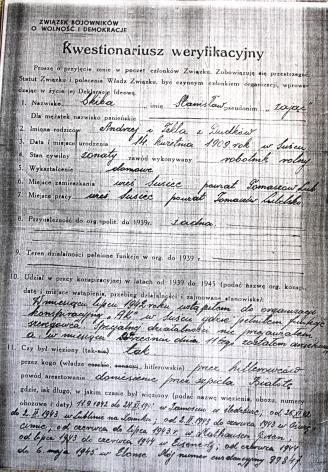 ZWIĄZEK BOJOWNIKÓW
O WOLNOŚĆ I DEMOKRACJĘ
Kwestionariusz weryfikacyjny
Proszę o przyjęcie mnie w poczet członków Związku. Zobowiązuję się przestrzegać
Statut Związku i polecenia Władz Związku, być czynnym członkiem organizacji, wprowa-
dzając w życie jej Deklarację Ideową.
1. Nazwisko Skiba imię Stanisław pseudonim "zając"
Dla mężatek nazwisko panieńskie
2. Imiona rodziców Andrzej i Tekla z Dudków
3. Data i miejsce urodzenia 14 kwietnia 1909 rok w Suścu
4. Stan cywilny żonaty zawód wykonywany robotnik rolny
5. Wykształcenie domowe
6. Miejsce zamieszkania wieś Susiec powiat Tomaszów Lub
7. Miejsce pracy wieś Susiec powiat Tomaszów Lubelski
8. Przynależność do org. polit. do 1939r. żadna
9. Teren działalności pełnione funkcje w org. do 1939
10. Udział w pracy konspiracyjnej w latach od 1939 do 1945 (podać nazwę org. konsp.
datę i miejsce wstąpienia, przebieg działalności i zajmowane stanowiska)
W miesiącu lipcu 1942 roku wstąpiłem do organizacji
konspiracyjnej "AK" w Suścu gdzie pełniłem funkcję
Specjalnej działalności nie
a w miesiącu wrześniu dnia 11 bg. zostałem
11. Czy był więziony (tak-nie) tak
przez kogo (władze hitlerowskie) przez hitlerowców
powód aresztowania doniesienie przez szpicla
gdzie, jak długo, w jakim czasie był więziony (podać nazwę więzienia, obozu, numery
obozowe i daty) w Zamościu w śledztwie, od
do 2.II.1943 w Lublinie na Zamku, od 2.II 1943 do czerwca 1943 w
od czerwca do lipca 1943 r. w Mathausen
od lipca 1943 do czerwca 1944 od czerwca 1944
do 6 maja 1945 w Ebense Mój numer